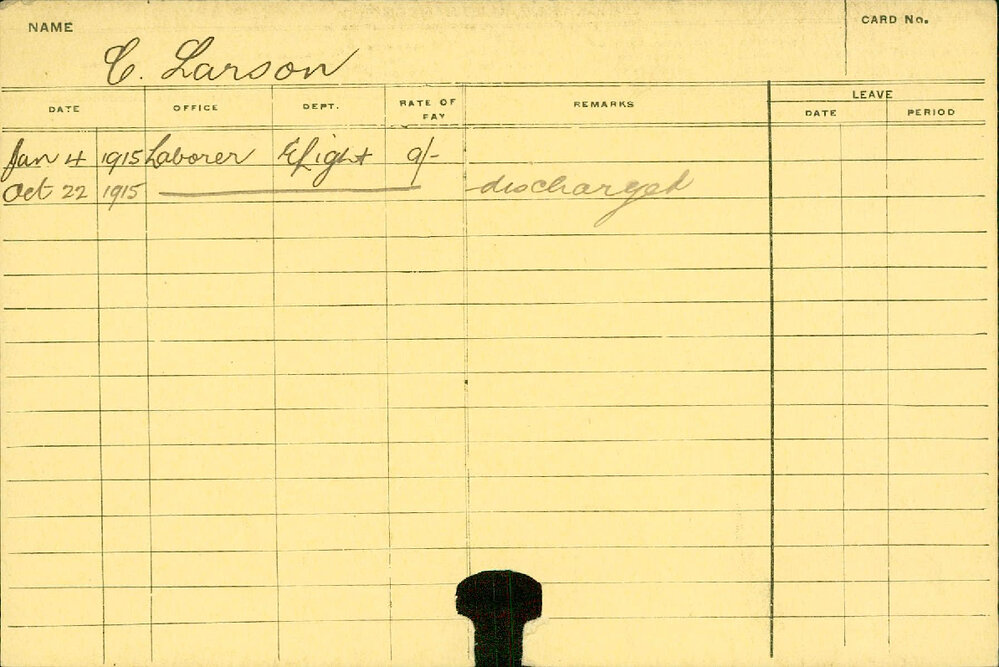 NAME
CARD No.
C. Larson
DATE OFFICE DEPT. RATE OF PAY REMARKS LEAVE
DATE PERIOD
Jan 4 1915 Laborer Elight 9/-
Oct 22 1915 discharged